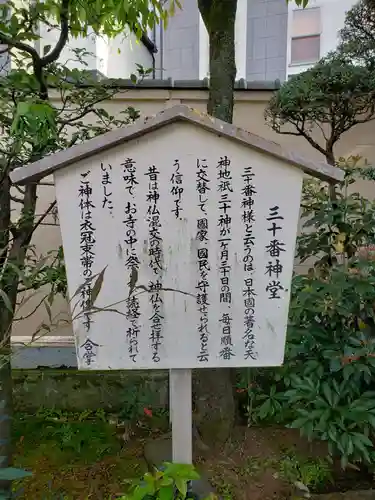 三十番神堂
三十番神様と云うのは、日本国の著名な天
神地祇三十神が一ヶ月三十日の間、毎日順番
に交替して、國家、國民を守護せられると云
う信仰です。
昔は神仏混交の時代で、神仏を合せ拝する
意味で、お寺の中に祭 読経で祈られて
いました。
ご神体は衣冠束帯の 様です 合掌